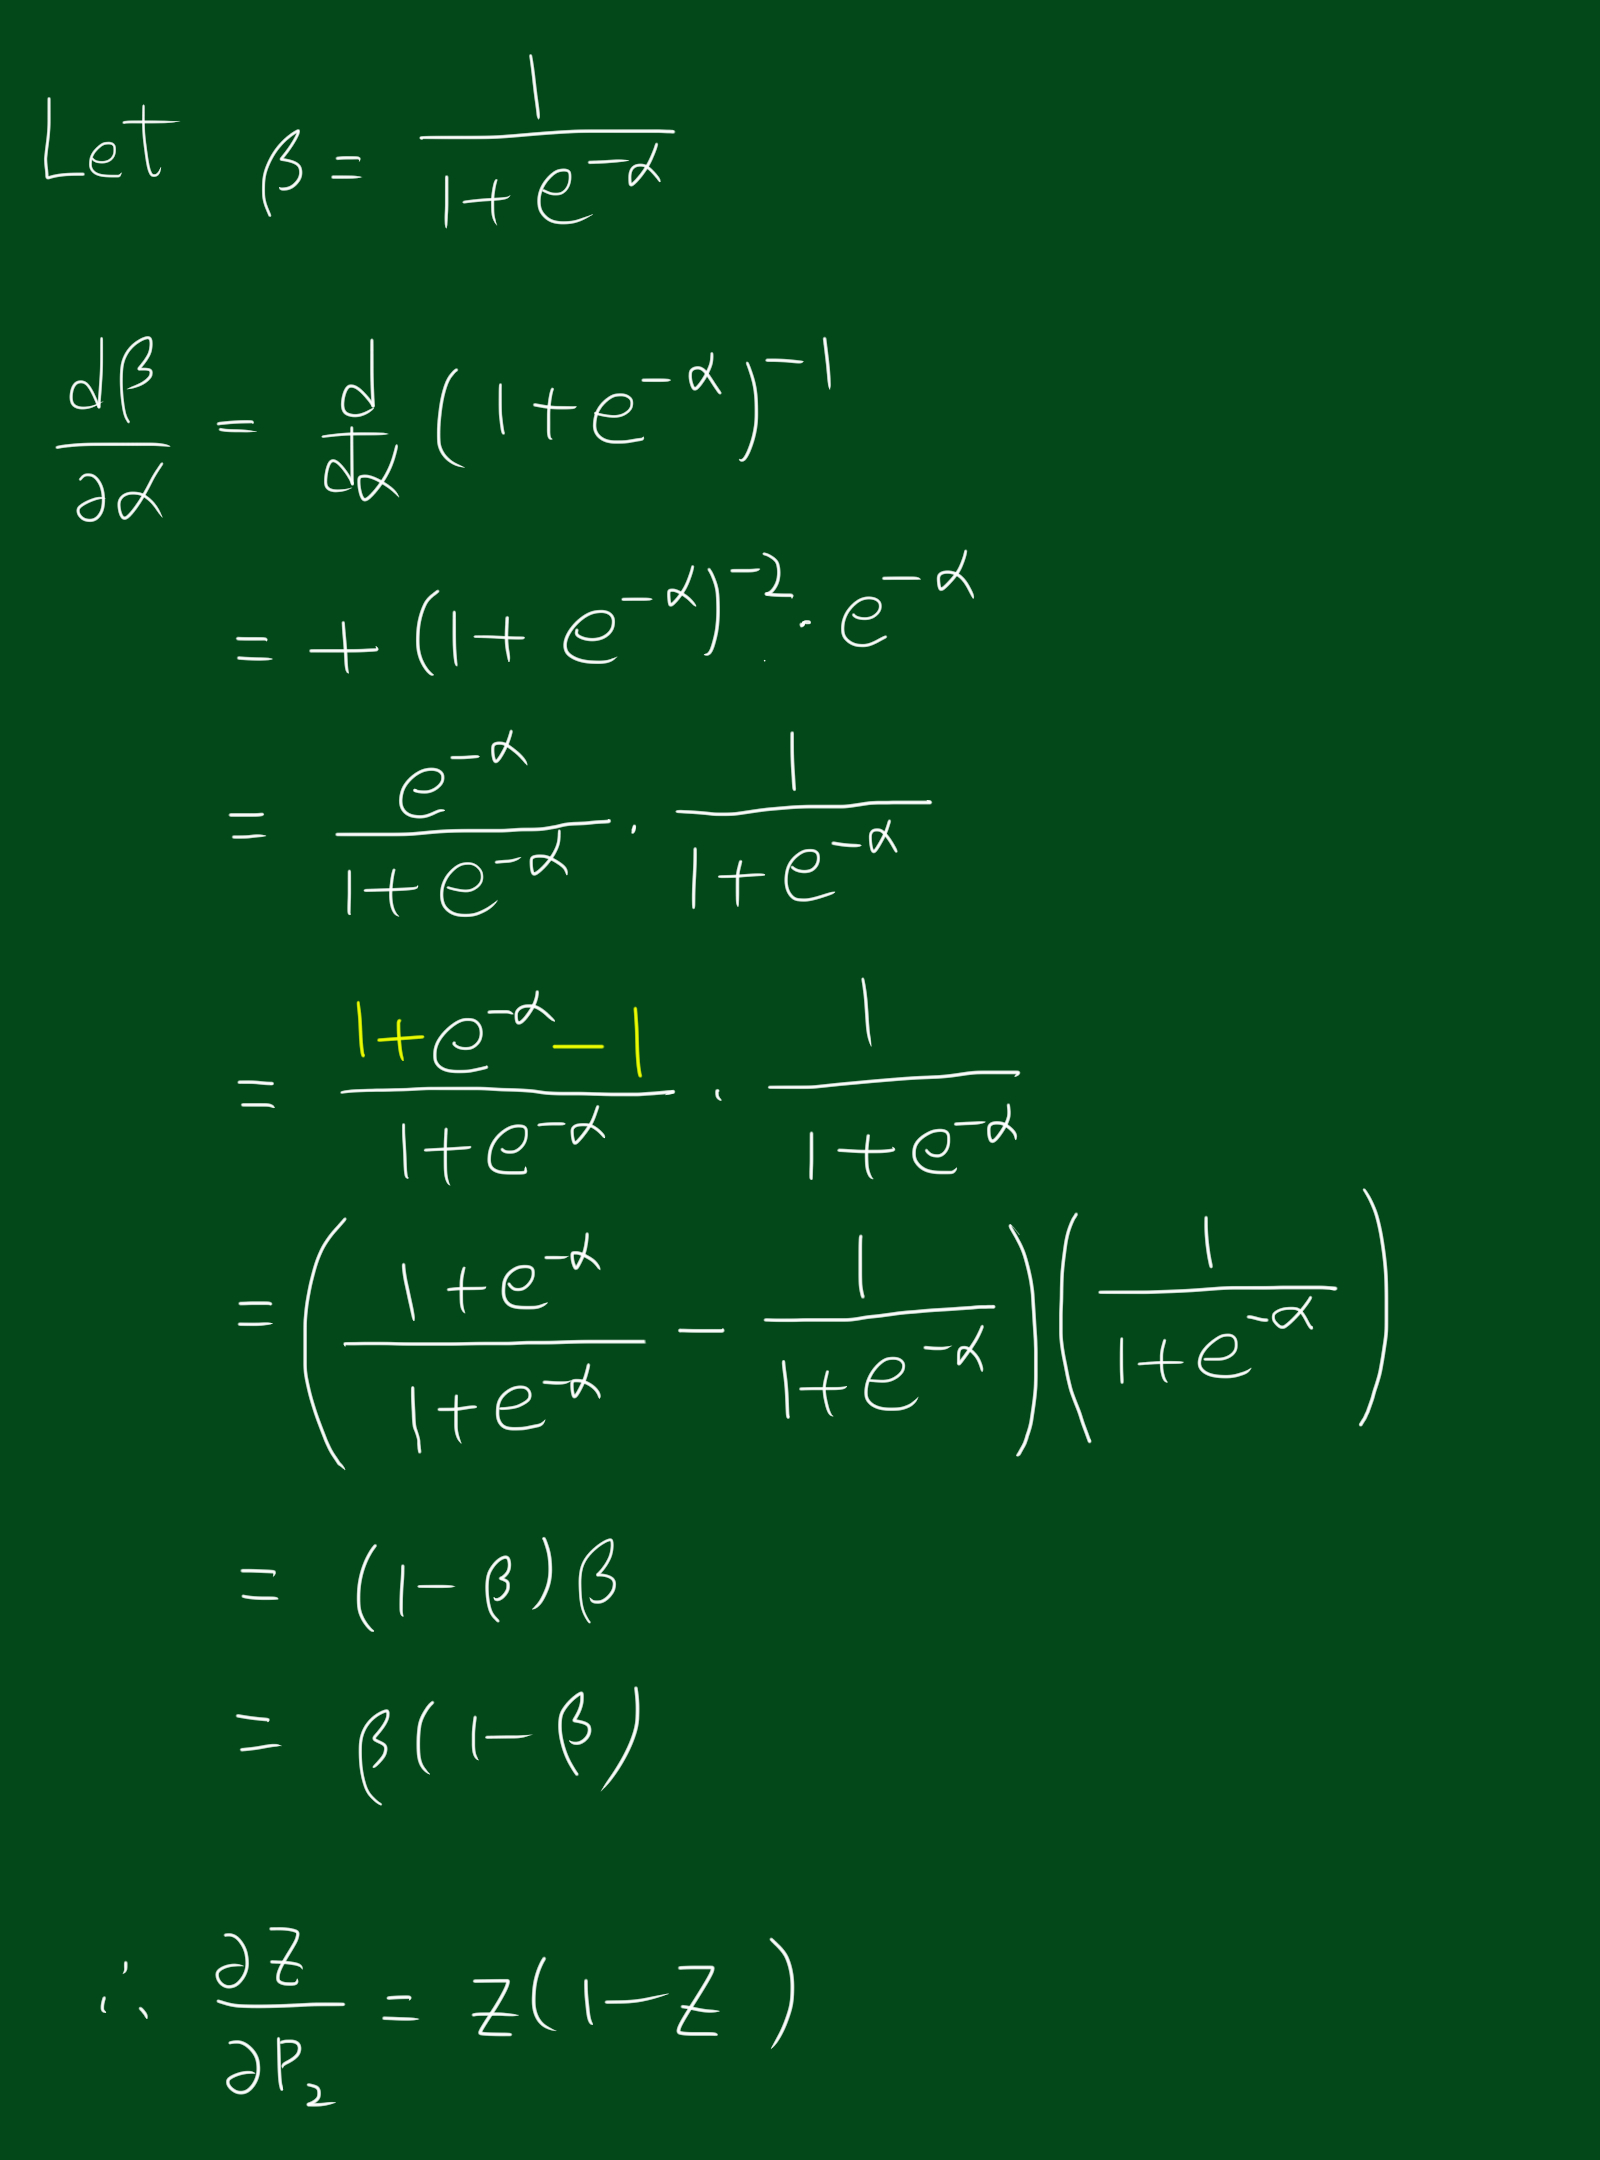 Let β = 1/(1+e^{-α})
dβ/∂α = d/dα (1+e^{-α})^{-1}
= + (1+e^{-α})^{-2} · e^{-α}
= e^{-α}/(1+e^{-α}) · 1/(1+e^{-α})
= (1+e^{-α}-1)/(1+e^{-α}) · 1/(1+e^{-α})
= ((1+e^{-α})/(1+e^{-α}) - 1/(1+e^{-α}))(1/(1+e^{-α}))
= (1-β)β
= β(1-β)
∴ ∂Z/∂P₂ = Z(1-Z)